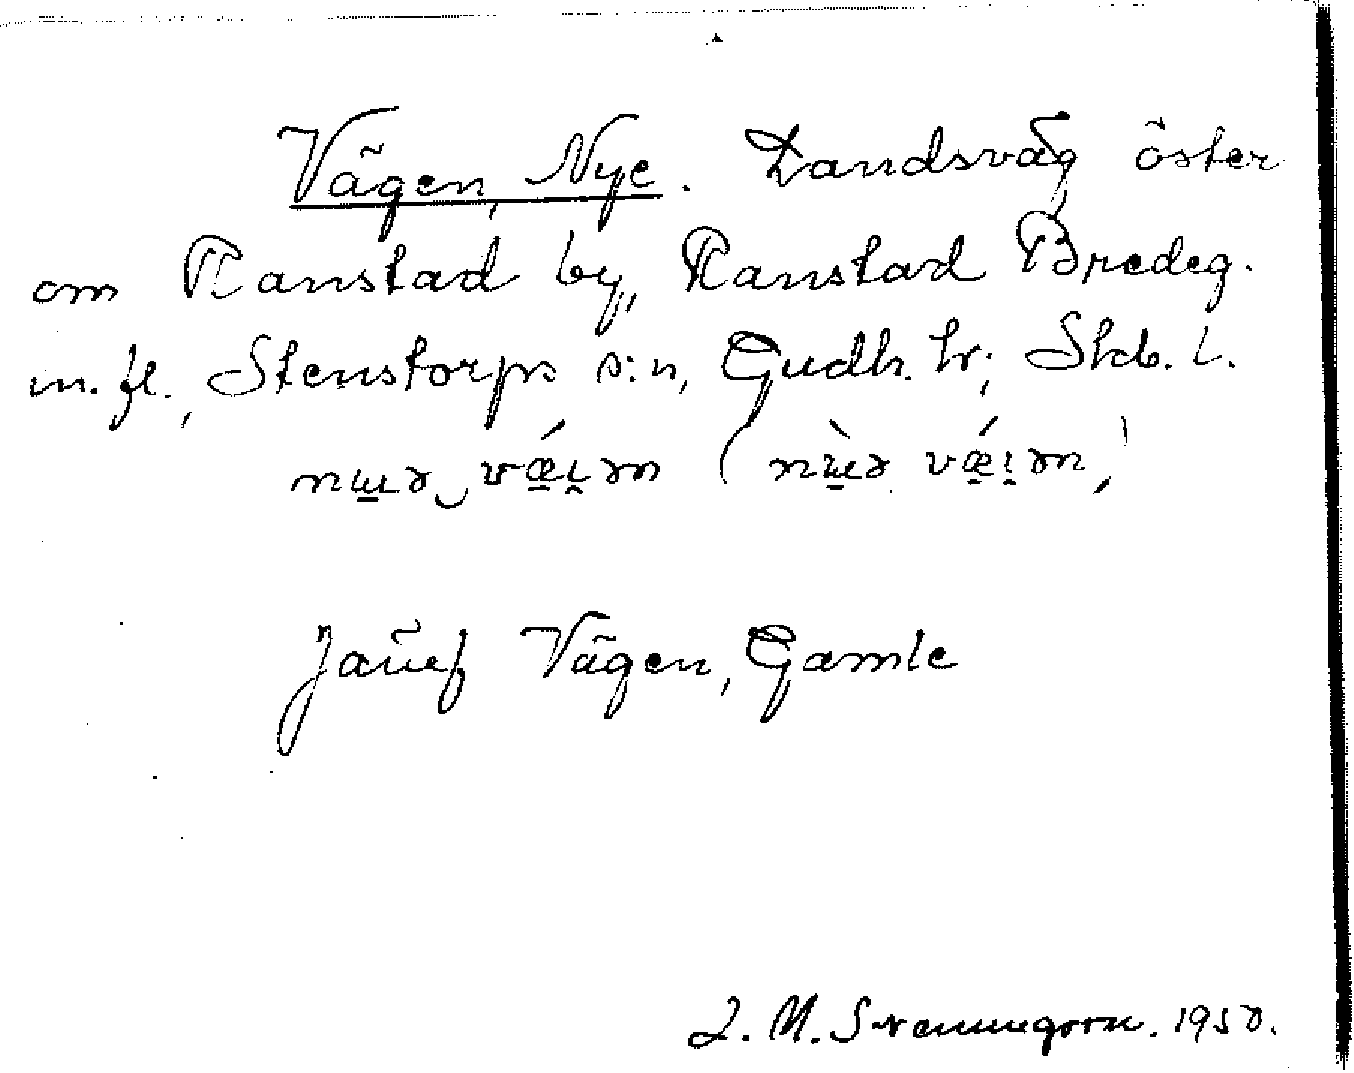 Vägen, Nye. Landsväg öster
om Ranstad by, Ranstad Bredeg.
m. fl., Stenstorps s:n, Gudh. hr; Skb. l.
Jämf Vägen, Gamle
J. M. Svennegorn. 1950.